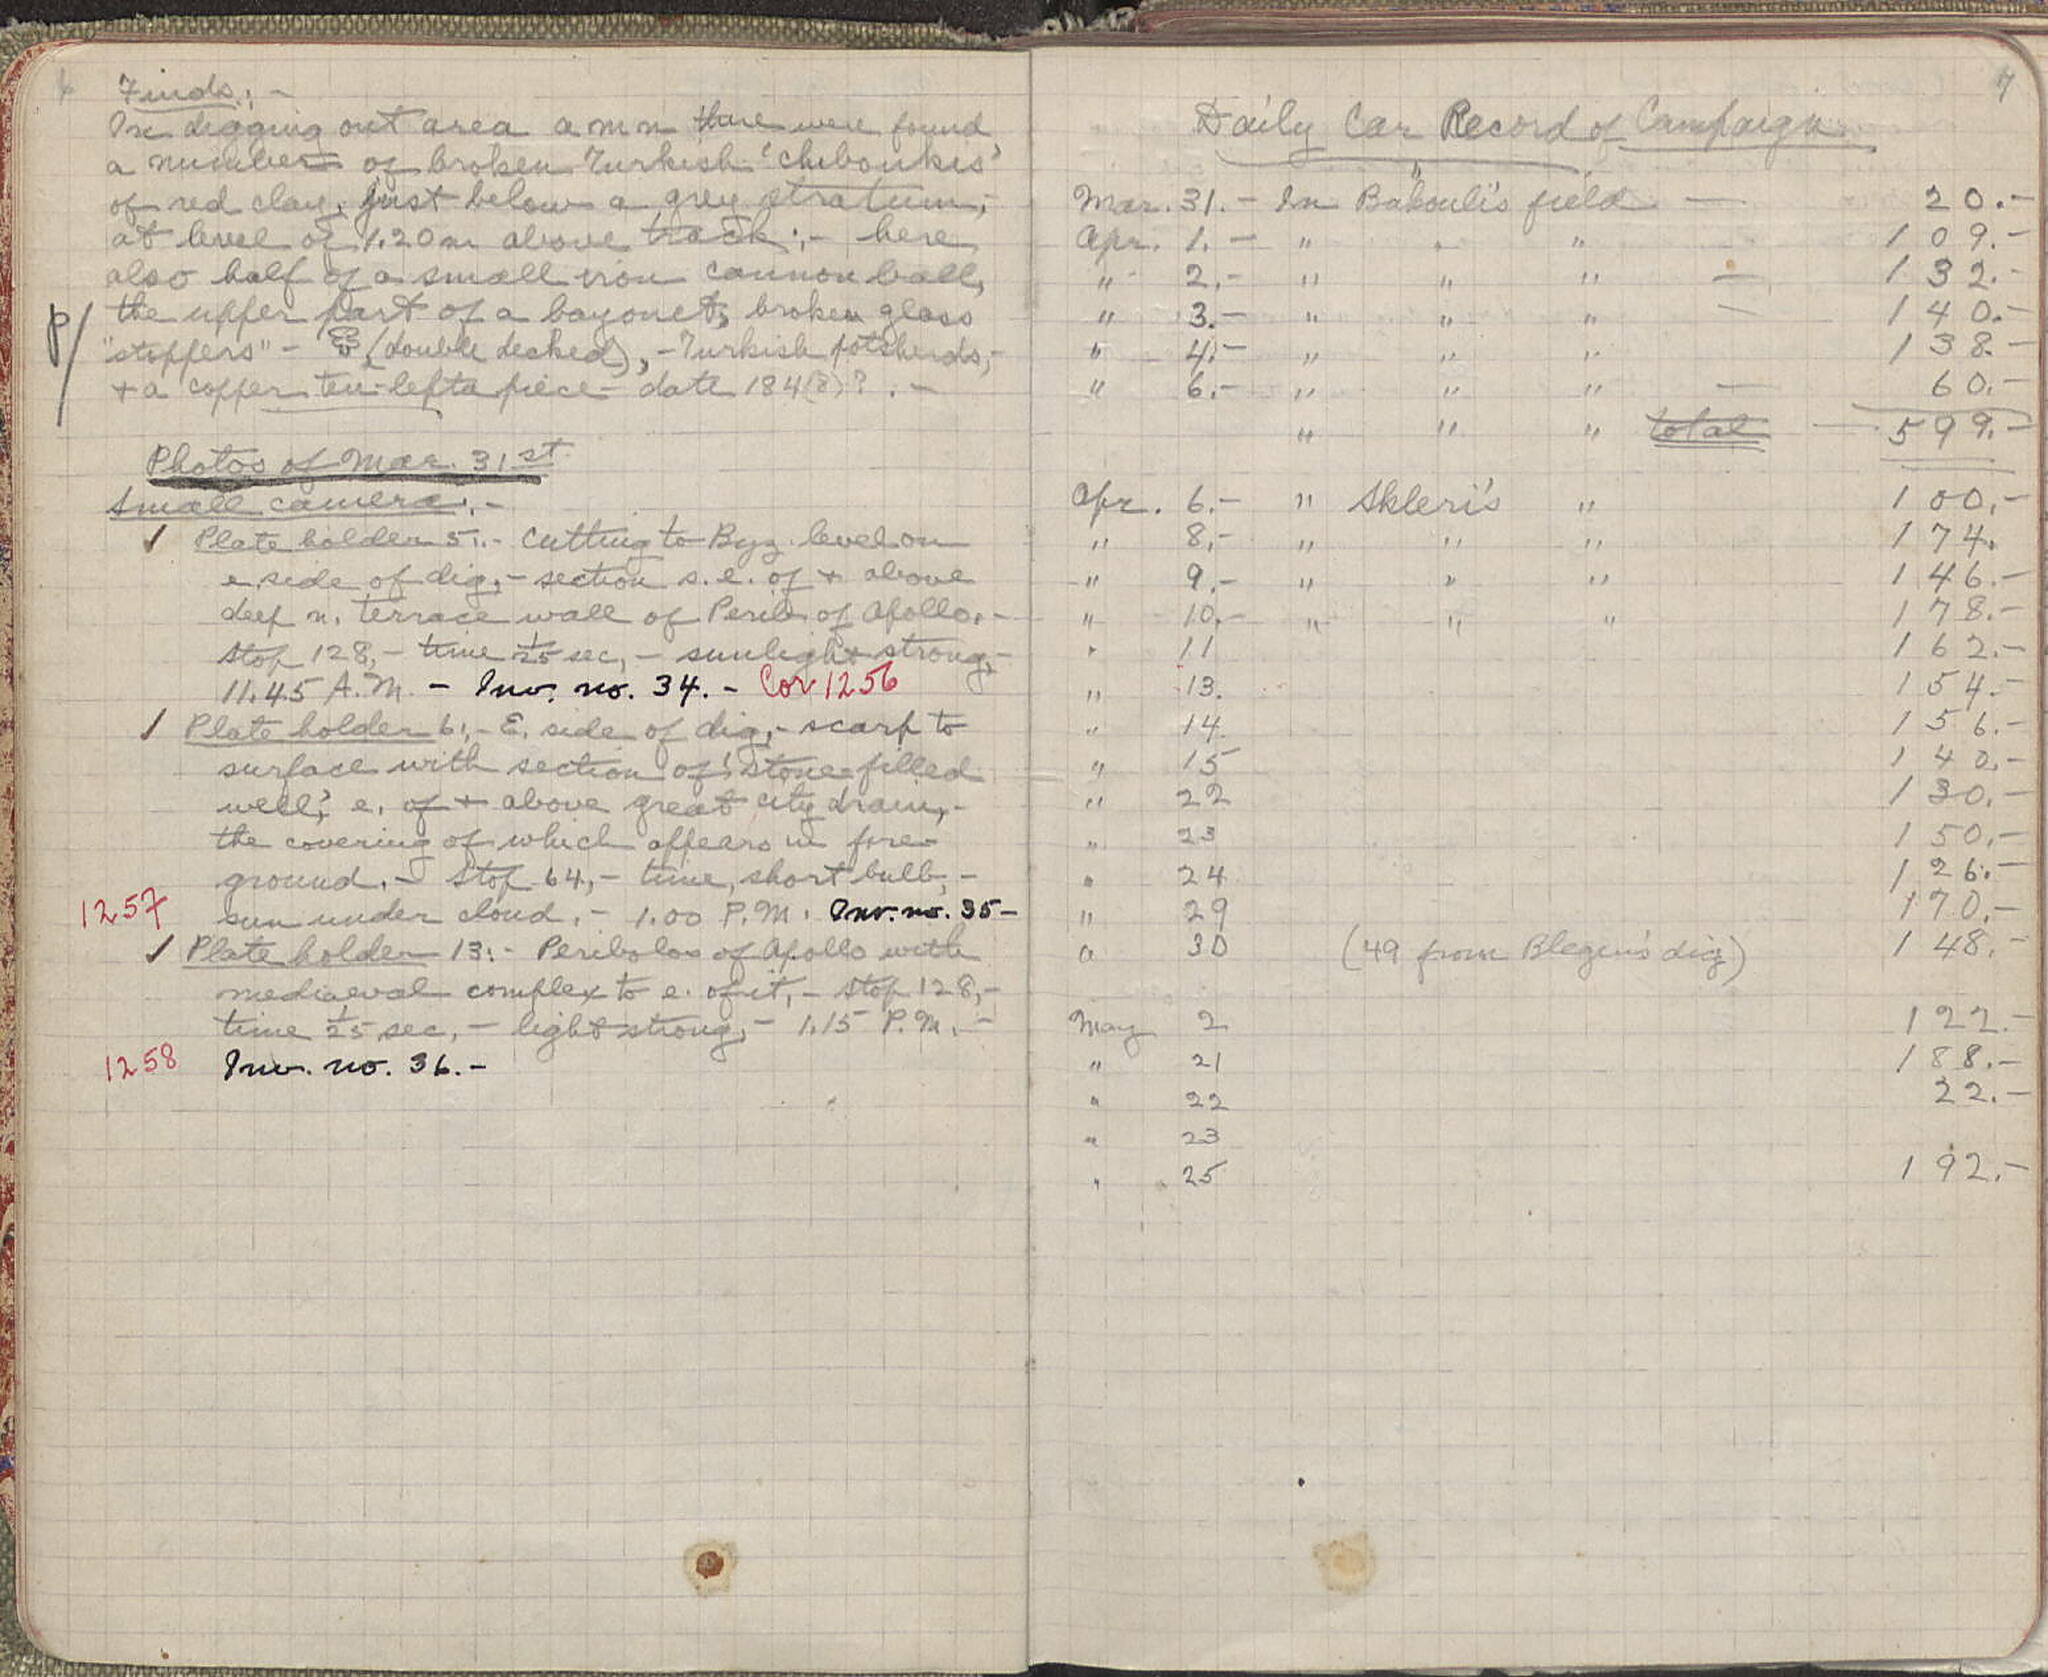 6
Finds:-
In digging out area a m n there were found
a number of broken Turkish 'chiboukis'
of red clay, just below a grey stratum,-
at level of 1.20m above track:- here
also half of a small iron cannon ball,
P/ the upper part of a bayonet, broken glass
"stoppers" - (double decked), - Turkish potsherds,-
+ a copper ten-lepta piece - date 184(8)?. -
Photos of Mar. 31st
Small camera:-
✓ Plate holder 5:- Cutting to Byz. level on
e. side of dig,- section s.e. of + above
deep n. terrace wall of Perib. of Apollo.-
Stop 128,- time 1/25 sec,- sunlight strong,-
11.45 A.M. - Inv. no. 34. - Cor 1256
✓ Plate holder 6:- E. side of dig,- scarp to
surface with section of 'stone-filled
well', e. of + above great city drain,-
the covering of which appears in fore-
ground. - Stop 64,- time, short bulb,-
1257 sun under cloud. - 1.00 P.M. Inv. no. 35-
✓ Plate holder 13:- Peribolos of Apollo with
mediaeval complex to e. of it,- stop 128,-
time 1/25 sec, - light strong,- 1.15 P.M. -
1258 Inv. no. 36.-
7
Daily Car Record of Campaign
Mar. 31.- In Babouli's field - 20.-
Apr. 1.- " " " 109.-
" 2.- " " " - 132.-
" 3.- " " " - 140.-
" 4.- " " " 138.-
" 6.- " " " - 60.-
" " " total - 599.-
Apr. 6.- " Skleri's " 100.-
" 8.- " " " 174.
" 9.- " " " 146.-
" 10.- " " " 178.-
" 11 162.-
" 13. 154.-
" 14 156.-
" 15 140.-
" 22 130.-
" 23 150.-
" 24 126.-
" 29 170.-
" 30 (49 from Blegen's dig) 148.-
May 2 122.-
" 21 188.-
" 22 22.-
" 23
" 25 192.-